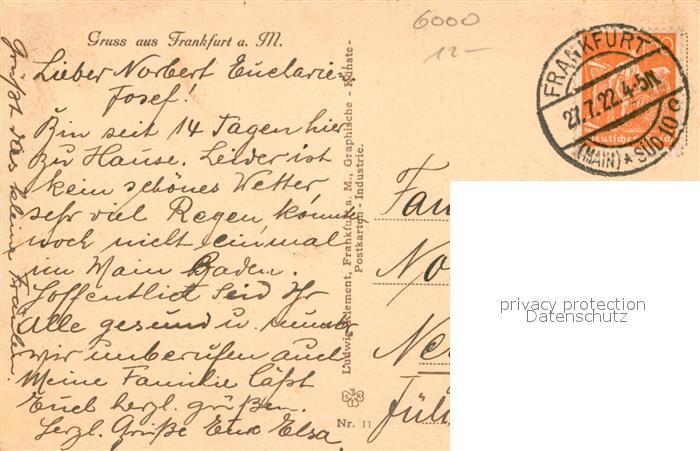 6000
12-
Gruss aus Frankfurt a. M.
Lieber Norbert Euclarie
Josef!
Bin seit 14 Tagen hier
zu Hause. Leider ist
kein schönes Wetter
sehr viel Regen, konnte
noch nicht einmal
im Main Baden.
Hoffentlich seid Ihr
Alle gesund u. munter
wir unberufen auch
Meine Familie läßt
Euch herzl. grüßen.
Herzl. Grüße Eure Elsa.
Grüßt das kleine Fräulein.
Ludwig Klement, Frankfurt a. M., Graphische - Künste-
Postkarten - Industrie.
Nr. 11
FRANKFURT
27.7.22. 4-5N.
(MAIN) * SÜD 10 c
Deutsches
Fam
No
Ne
Jül
privacy protection
Datenschutz